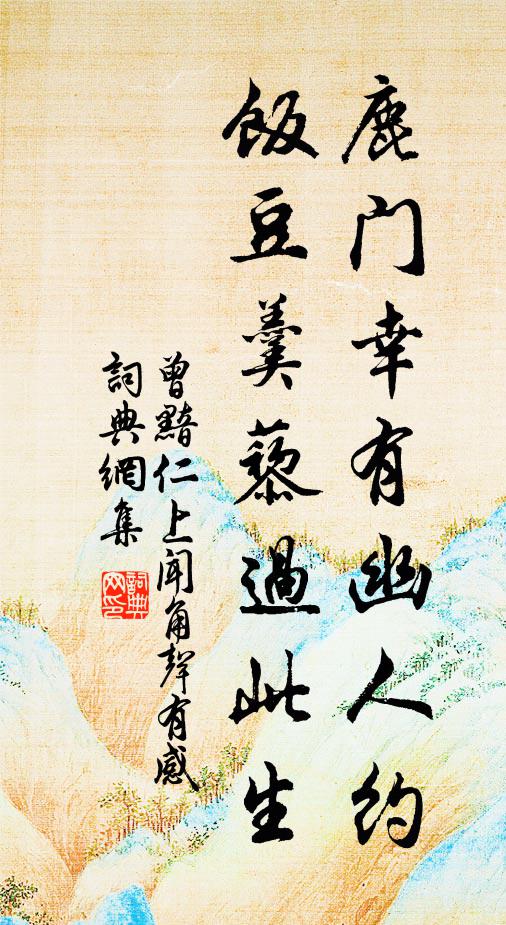 鹿门幸有幽人约
飯豆羹藜過此生
曾黯仁上闻角聲有感
詞典網集
詞典网印